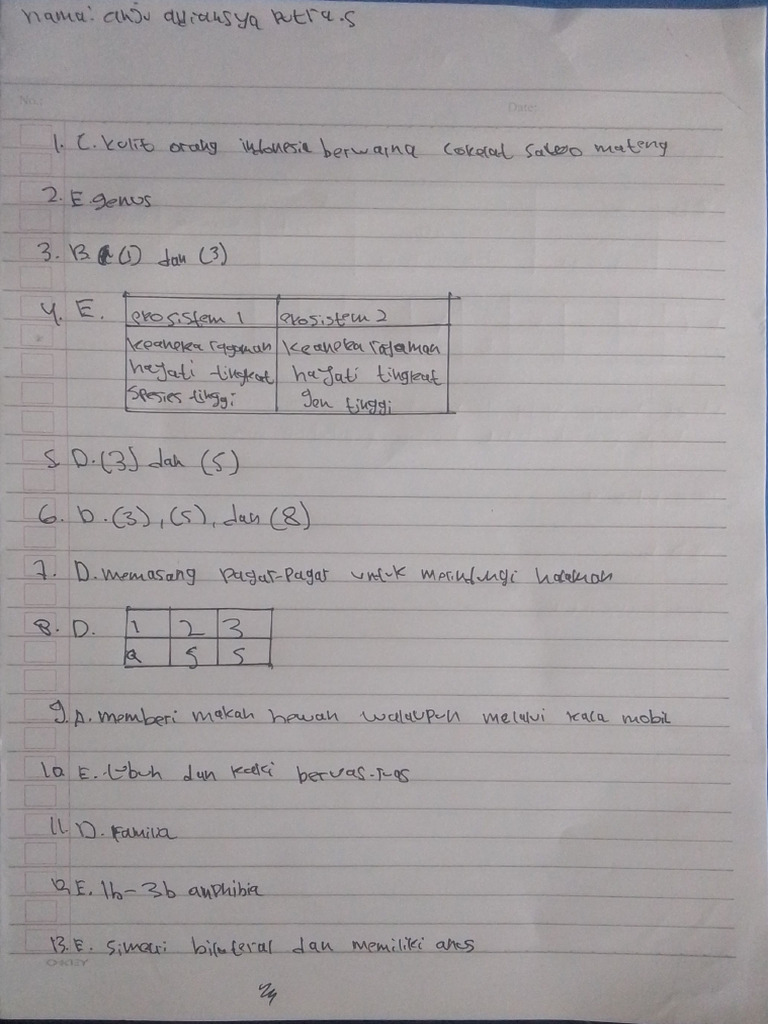 nama: anju adriansya putra.s
No.:
Date:
1. C. kulit orang indonesia berwarna cokelat sawo mateng
2. E genus
3. B (1) dan (3)
4. E.
ekosistem 1 ekosistem 2
keaneka ragaman keaneka ragaman
hayati tingkat hayati tingkat
spesies tinggi gen tinggi
5. D. (3) dan (5)
6. D. (3), (5), dan (8)
7. D. memasang pagar-pagar untuk melindungi halaman
8. D. 1 2 3
a s s
9. A. memberi makan hewan walaupun melalui kaca mobil
10 E. tubuh dan kaki beruas-ruas
11. D. Familia
12. E. 1b-3b amphibia
13. E. simetri bilateral dan memiliki anus
OKEY